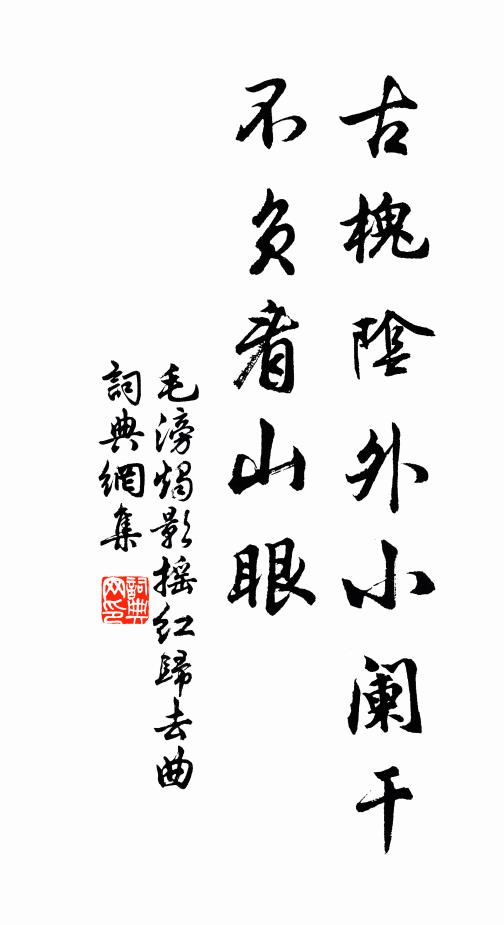 古槐陰外小闌干
不負看山眼
毛滂燭影搖紅歸去曲
詞典網集
詞典網印